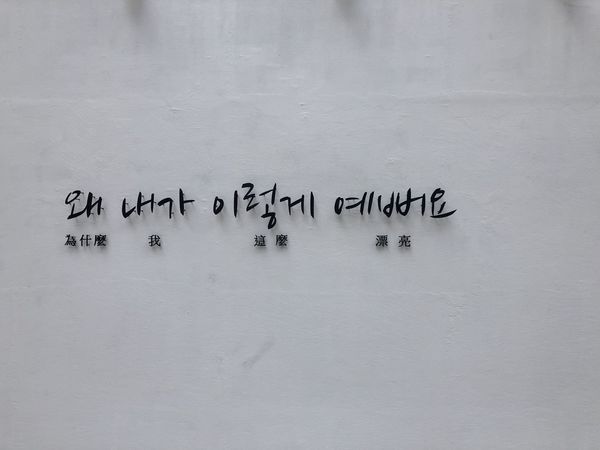 왜 내가 이렇게 예뻐요
為什麼 我 這麼 漂亮